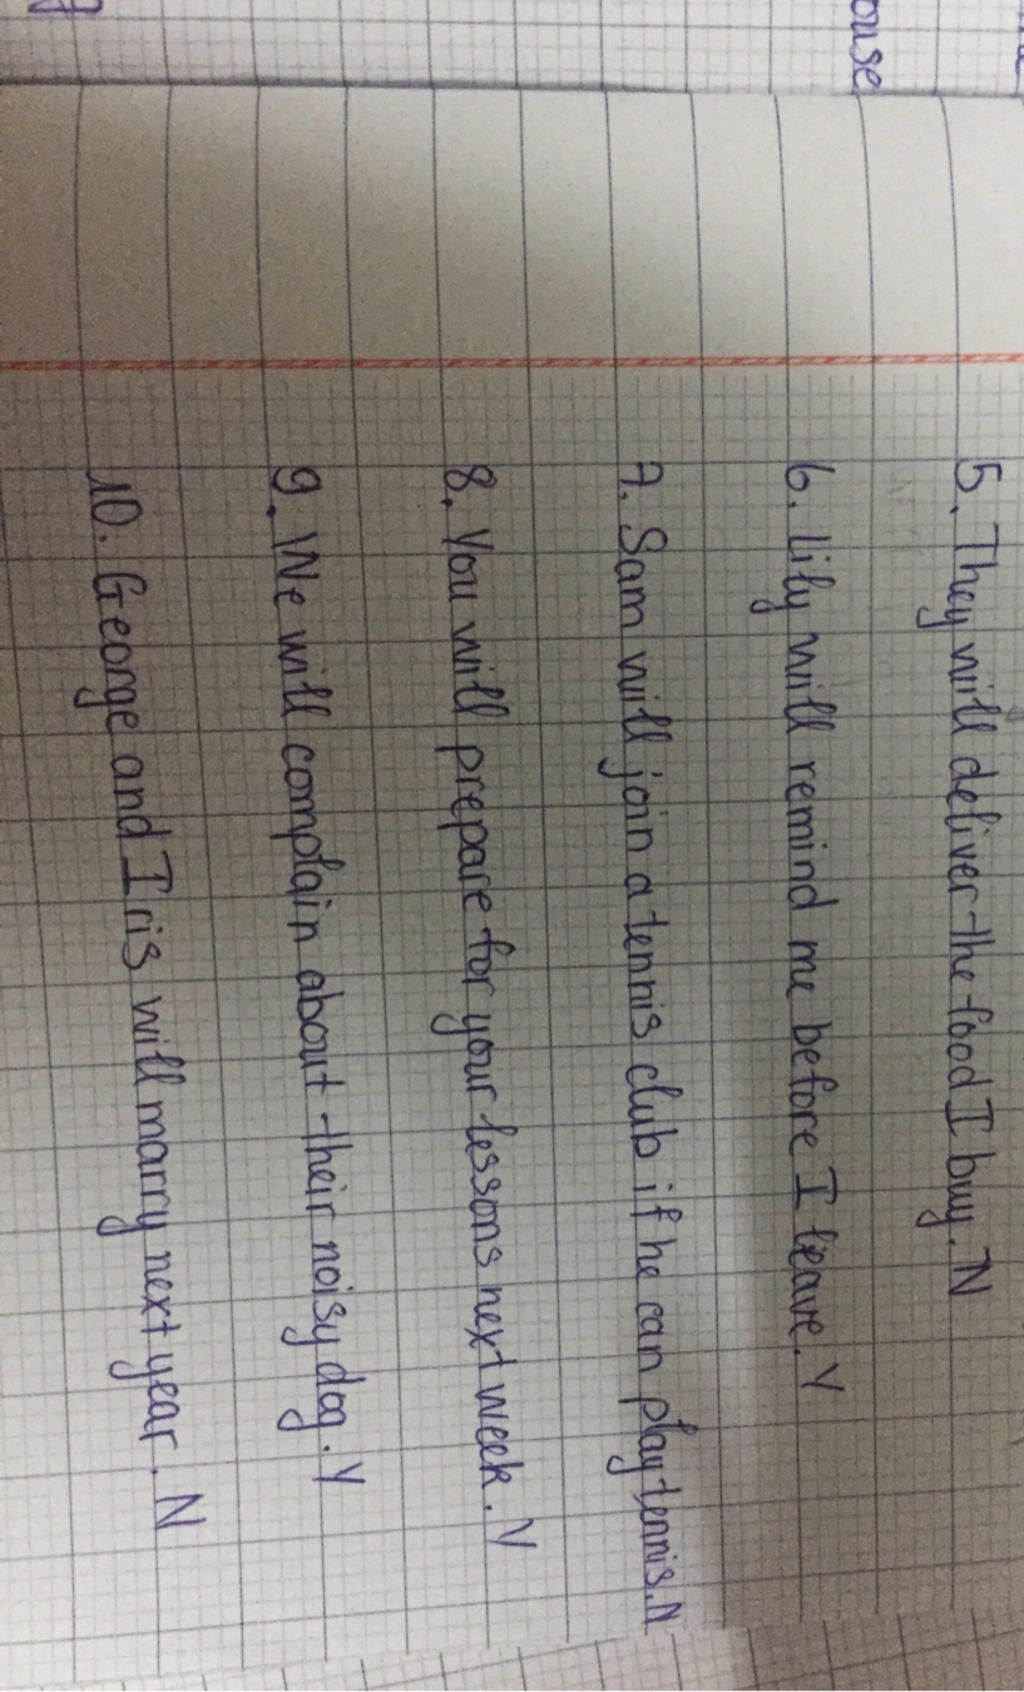 ouse
5. They will deliver the food I buy. N
6. Lily will remind me before I leave. Y
7. Sam will join a tennis club if he can play tennis. N
8. You will prepare for your lessons next week. Y
9. We will complain about their noisy dog. Y
10. George and Iris will marry next year. N